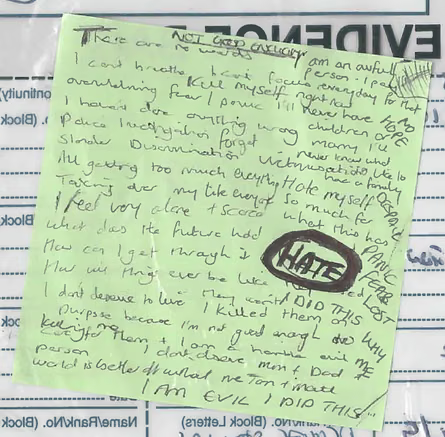 EVIDENCE
NOT GOOD ENOUGH
There are no words
I am an awful person - I pay
I can't breathe I can't focus everyday for that
Kill myself right now
overwhelming fear / panic I'll never have NO HOPE
I haven't done anything wrong children or marry I'll
Police investigation forget never know what
Slander Discrimination Victimisation it's like to have a family
All getting too much everything Hate myself DESPAIR
Taking over my life everyone so much for what this has
I feel very alone + scared
What does the future hold PANIC
How can I get through it FEAR
HATE LOST
How will things ever be like
they won't I DID THIS
I don't deserve to live I killed them on WHY ME
Purpose because I'm not good enough to
care for them + I am a horrible evil
Killing me
person I don't deserve mum + Dad
world is better off without me
I AM EVIL I DID THIS
(Continuity)
No. (Block
No. (Block
(Block
Name/Rank/No. (Block Letters)